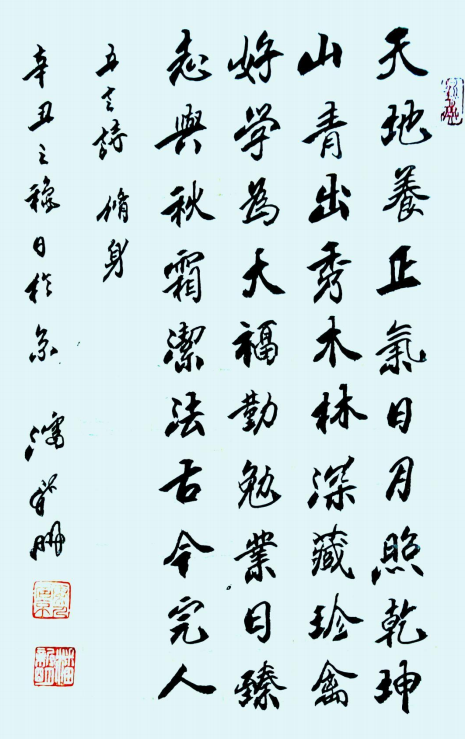 天地養正氣日月照乾坤
山青出秀木林深藏珍禽
好学為大福勤勉業日臻
志與秋霜潔法古今完人
五言詩 脩身
辛丑之秋日於京